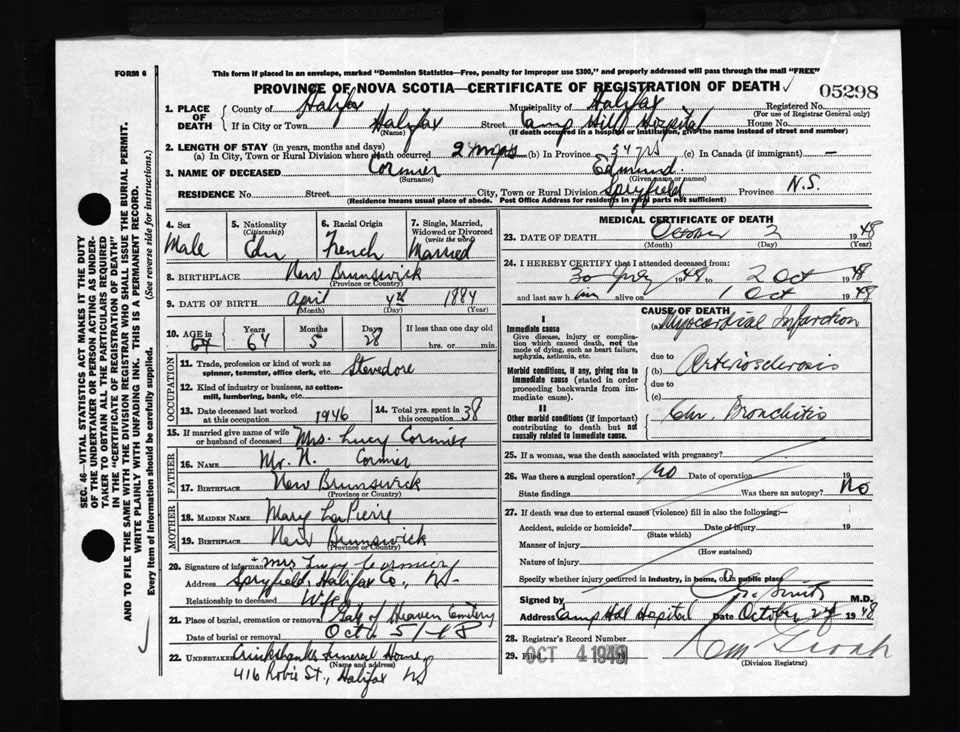 FORM 6
This form if placed in an envelope, marked "Dominion Statistics—Free, penalty for improper use $300," and properly addressed will pass through the mail "FREE"
PROVINCE OF NOVA SCOTIA—CERTIFICATE OF REGISTRATION OF DEATH
05298
1. PLACE OF DEATH
County of Halifax Municipality of Halifax Registered No.
(For use of Registrar General only)
If in City or Town Halifax Street Camp Hill Hospital House No.
(Name) (If death occurred in a hospital or institution, give the name instead of street and number)
2. LENGTH OF STAY (in years, months and days)
(a) In City, Town or Rural Division where death occurred 2 mos (b) In Province 54 yrs (c) In Canada (if immigrant) —
3. NAME OF DECEASED Cormier Edmund
(Surname) (Given name or names)
RESIDENCE No. Street City, Town or Rural Division Spryfield Province N.S.
(Residence means usual place of abode. Post Office Address for residents in rural parts not sufficient)
4. Sex Male
5. Nationality (Citizenship) Cdn
6. Racial Origin French
7. Single, Married, Widowed or Divorced (write the word) Married
8. BIRTHPLACE New Brunswick
(Province or Country)
9. DATE OF BIRTH April 4th 1884
(Month) (Day) (Year)
10. AGE in 64 Years 64 Months 5 Days 28 If less than one day old hrs. or min.
OCCUPATION
11. Trade, profession or kind of work as spinner, teamster, office clerk, etc. Stevedore
12. Kind of industry or business, as cotton-mill, lumbering, bank, etc.
13. Date deceased last worked at this occupation 1946
14. Total yrs. spent in this occupation 38
15. If married give name of wife or husband of deceased Mrs. Lucy Cormier
FATHER
16. NAME Mr. N. Cormier
17. BIRTHPLACE New Brunswick
(Province or Country)
MOTHER
18. MAIDEN NAME Mary LaPierre
19. BIRTHPLACE New Brunswick
(Province or Country)
20. Signature of informant + Mrs Lucy Cormier
Address Spryfield, Halifax Co., NS
Relationship to deceased Wife
21. Place of burial, cremation or removal Gate of Heaven Cemetery
Date of burial or removal Oct 5/48
22. UNDERTAKER Cruikshanks Funeral Home,
(Name and address)
416 Robie St., Halifax NS
MEDICAL CERTIFICATE OF DEATH
23. DATE OF DEATH October 2 1948
(Month) (Day) (Year)
24. I HEREBY CERTIFY that I attended deceased from:
30 July 1948 to 2 Oct 1948
and last saw him alive on 1 Oct 1948
CAUSE OF DEATH
I
Immediate cause
Give disease, injury or complication which caused death, not the mode of dying, such as heart failure, asphyxia, asthenia, etc.
(a) Myocardial Infarction
due to
Morbid conditions, if any, giving rise to immediate cause (stated in order proceeding backwards from immediate cause)
(b) Arteriosclerosis
due to
(c)
II
Other morbid conditions (if important) contributing to death but not causally related to immediate cause.
Chr Bronchitis
25. If a woman, was the death associated with pregnancy?
26. Was there a surgical operation? No Date of operation 19
State findings Was there an autopsy? No
27. If death was due to external causes (violence) fill in also the following:—
Accident, suicide or homicide? Date of injury 19
(State which)
Manner of injury
(How sustained)
Nature of injury
Specify whether injury occurred in industry, in home, or in public place
Signed by Smith M.D.
Address Camp Hill Hospital Date October 2nd 1948
28. Registrar's Record Number
29. Filed OCT 4 1948 19
(Division Registrar)
SEC. 46—VITAL STATISTICS ACT MAKES IT THE DUTY
OF THE UNDERTAKER OR PERSON ACTING AS UNDER-
TAKER TO OBTAIN ALL THE PARTICULARS REQUIRED
IN THE "CERTIFICATE OF REGISTRATION OF DEATH"
AND TO FILE THE SAME WITH THE DIVISION REGISTRAR WHO SHALL ISSUE THE BURIAL PERMIT.
WRITE PLAINLY WITH UNFADING INK. THIS IS A PERMANENT RECORD.
Every item of information should be carefully supplied. (See reverse side for instructions.)